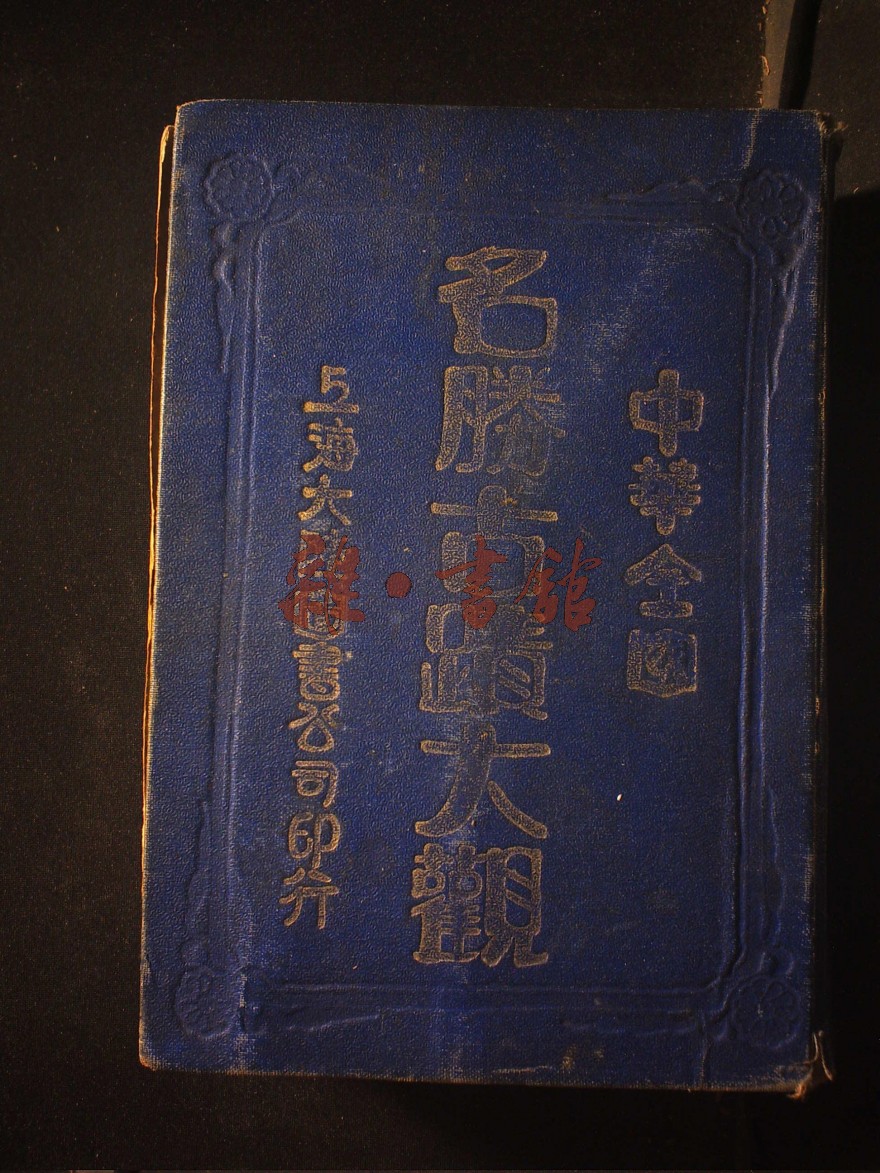 中華全國
名勝古蹟大觀
上海大陸圖書公司印行
雜·書館